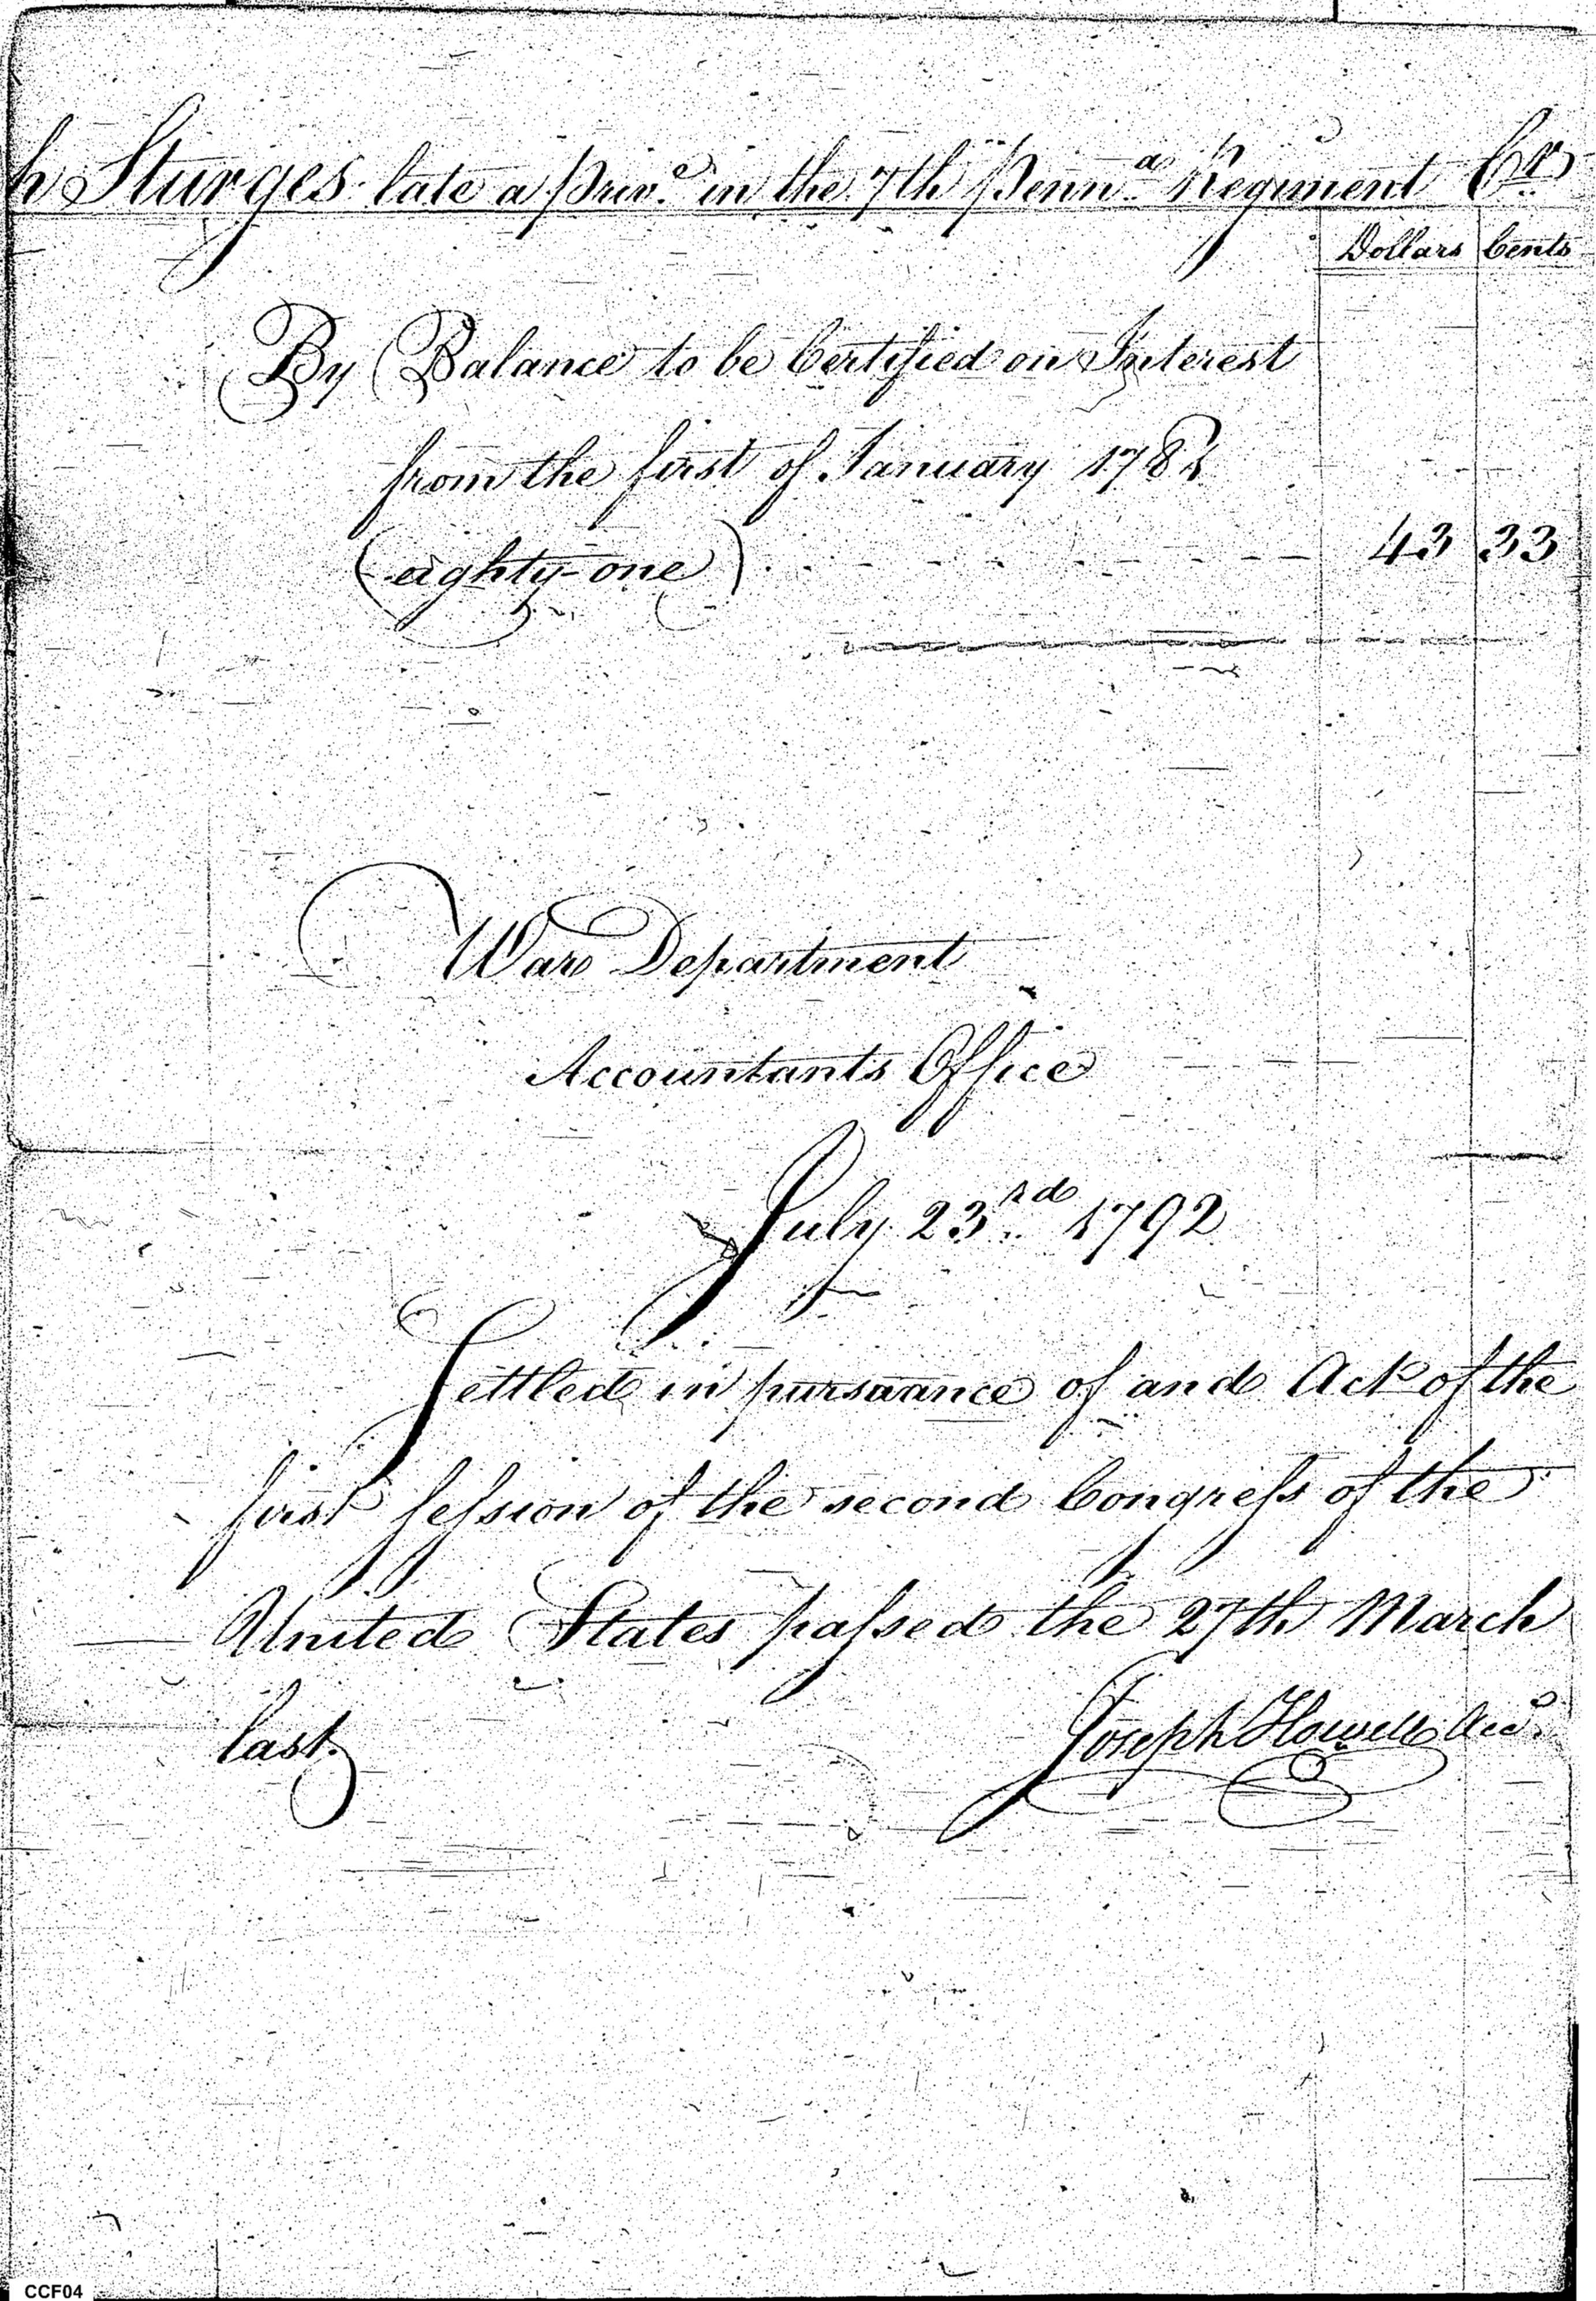 h Sturges late a priv.e in the 7th Penn.a Regiment Cr.
Dollars Cents
By Balance to be Certified on Interest
from the first of January 1781
(eighty-one) 43 33
War Department
Accountants Office
July 23.rd 1792
Settled in pursuance of and Act of the
first session of the second Congress of the
United States passed the 27th March
last.
Joseph Howell Acct.
CCF04